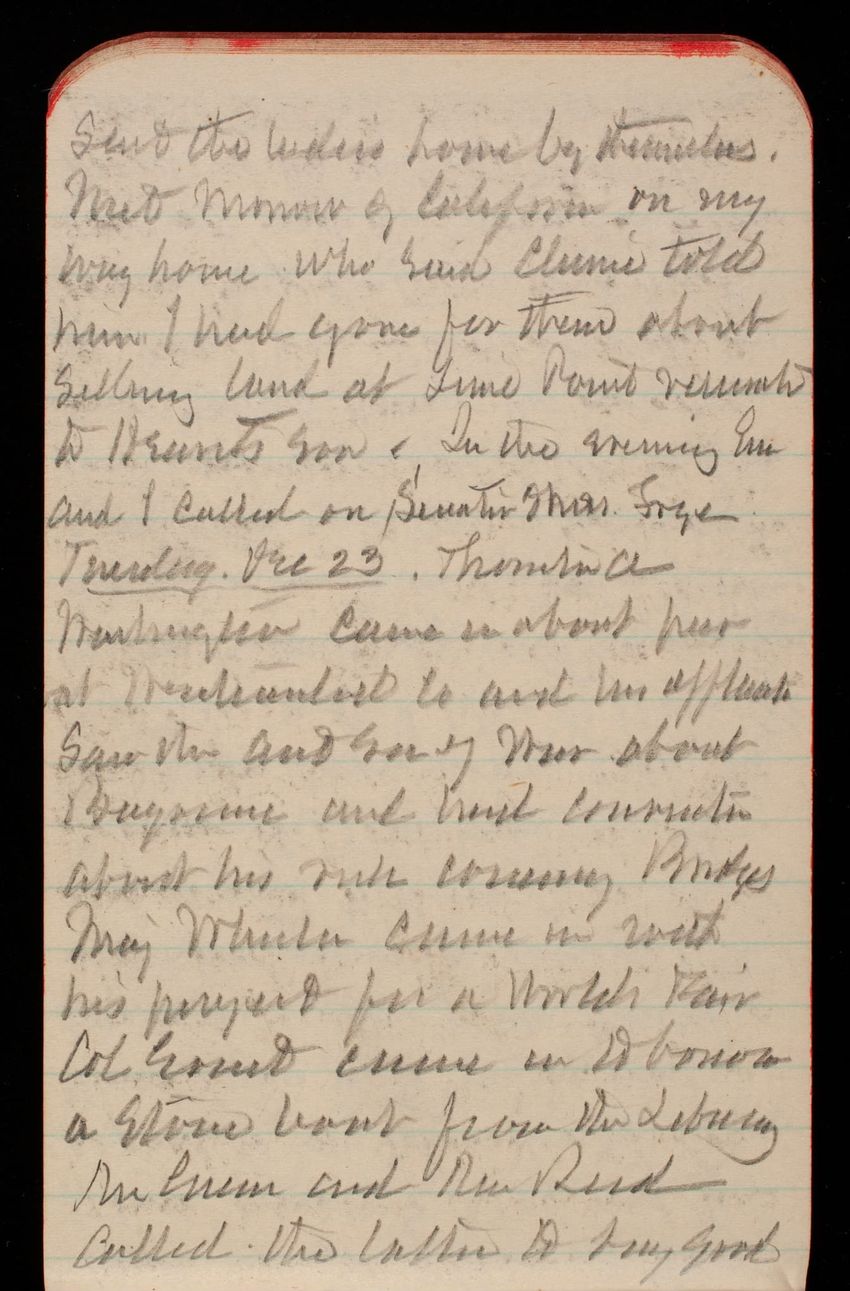 Sent the ladies home by themselves.
Met Morrow of California on my
way home who said Clunie told
him I had gone for them about
selling land at Lime Point
to Hearst's son & In the evening Em
and I called on Senator & Mrs. Frye
Tuesday. Dec 23. Thornton A
Washington came in about pier
at and his
Saw the and Sec of War about
and had
about his Bridges
Maj Wheeler came in with
his for a Worlds Fair
Col came in to borrow
a Stone from the Library
Mr and Rev Reed
called the latter to say good